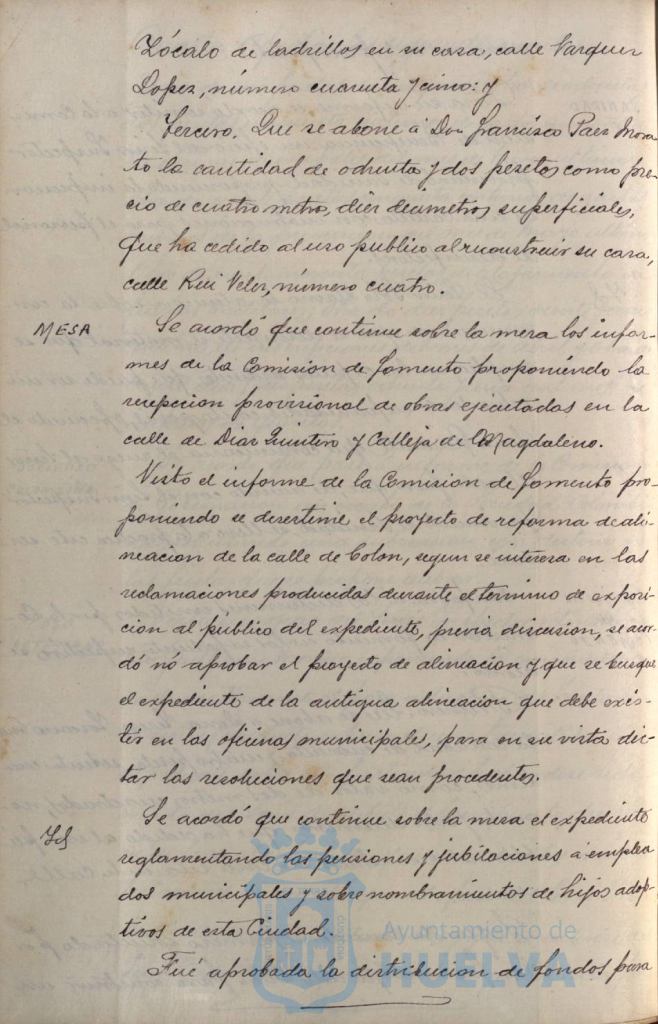 Zócalo de ladrillos en su casa, calle Vazquez
Lopez, número cuarenta y cinco: y
Tercero. Que se abone á Don Francisco Paez Mora-
to la cantidad de ochenta y dos pesetas como pre-
cio de cuatro metros, diez decimetros superficiales,
que ha cedido al uso publico al reconstruir su casa,
calle Rui Velez, número cuatro.
MESA
Se acordó que continue sobre la mesa los infor-
mes de la Comision de fomento proponiendo la
recepcion provisional de obras ejecutadas en la
calle de Diaz Quintero y Calleja de la Magdalena.
Visto el informe de la Comision de fomento pro-
poniendo se desestime el proyecto de reforma de ali-
neacion de la calle de Colon, segun se interesa en las
reclamaciones producidas durante el termino de exposi-
cion al público del expediente, previa discusion, se acor-
dó nó aprobar el proyecto de alineacion y que se busque
el expediente de la antigua alineacion que debe exis-
tir en las oficinas municipales, para en su vista dic-
tar las resoluciones que sean procedentes.
Id
Se acordó que continue sobre la mesa el expediente
reglamentando las pensiones y jubilaciones á emplea-
dos municipales y sobre nombramientos de hijos adop-
tivos de esta Ciudad.
Fué aprobada la distribucion de fondos para
Ayuntamiento de
HUELVA